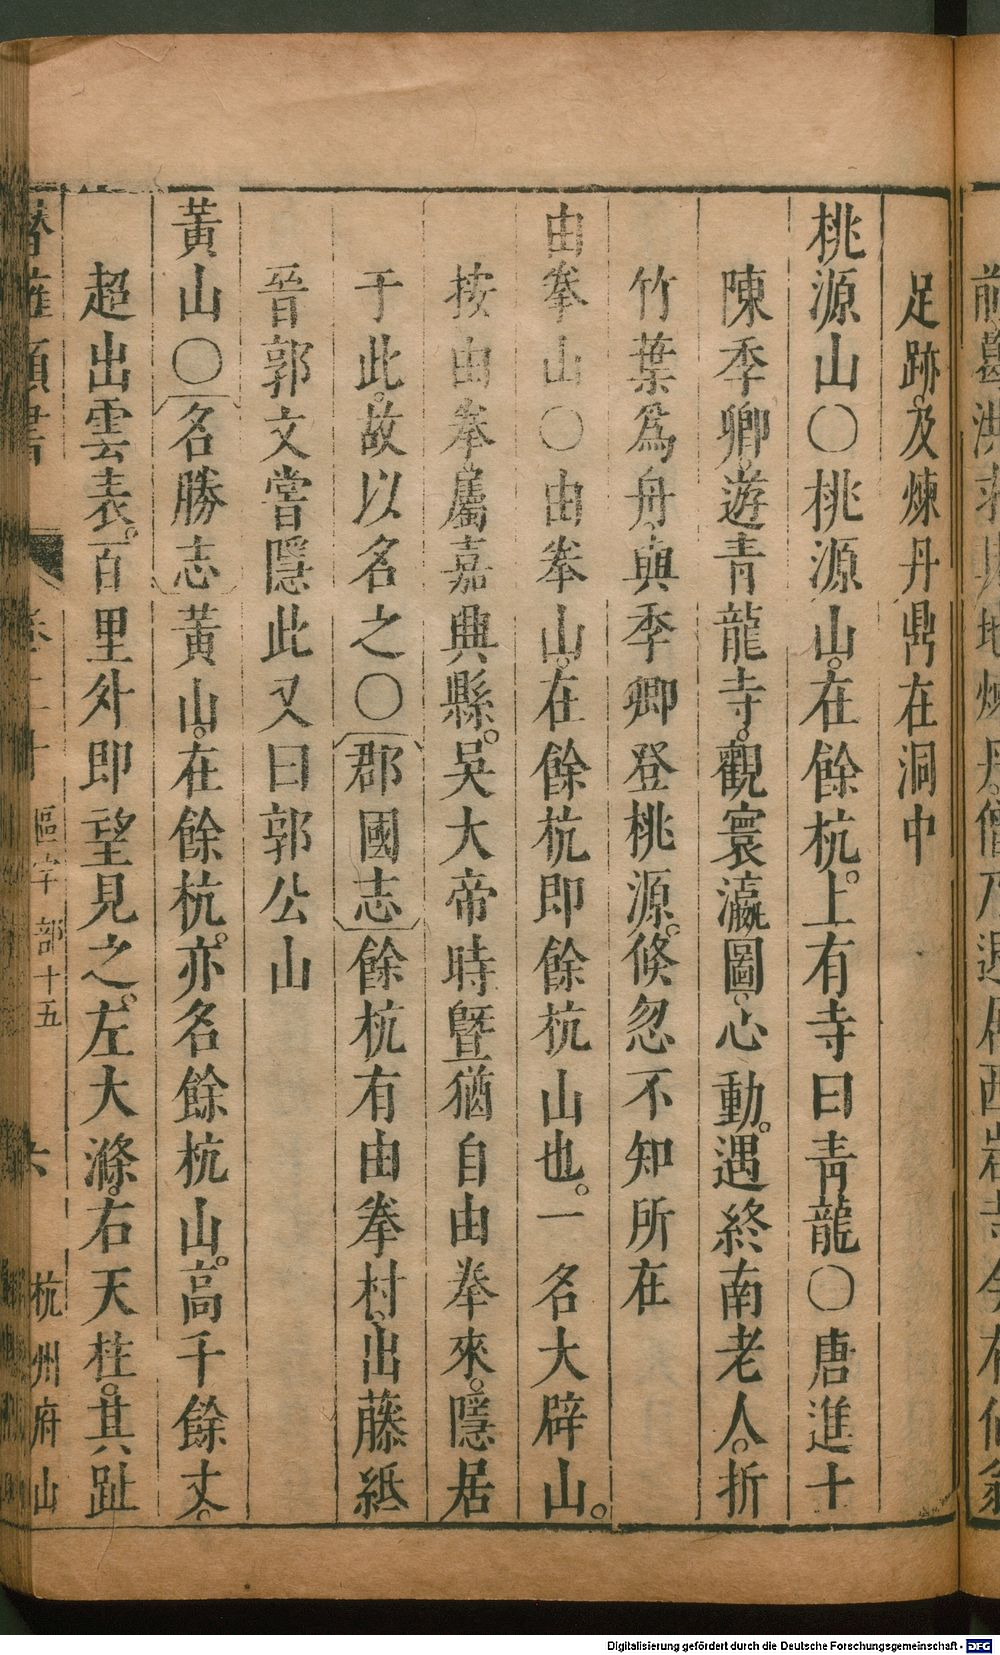 足跡。及煉丹鼎在洞中
桃源山〇桃源山。在餘杭。上有寺曰靑龍〇唐進士
陳季卿。遊靑龍寺。觀寰瀛圖。心動。遇終南老人。折
竹葉爲舟。與季卿登桃源。倐忽不知所在
由拳山〇由拳山。在餘杭即餘杭山也。一名大辟山。
按由拳。屬嘉興縣。吳大帝時曁猶自由拳來。隱居
于此。故以名之〇郡國志餘杭有由拳村。出藤紙
晉郭文嘗隱此又曰郭公山
黃山〇名勝志黃山。在餘杭。亦名餘杭山。高千餘丈。
超出雲表。百里外即望見之。左大滌。右天柱。其趾
區宇部十五
六
杭州府山
Digitalisierung gefördert durch die Deutsche Forschungsgemeinschaft - DFG